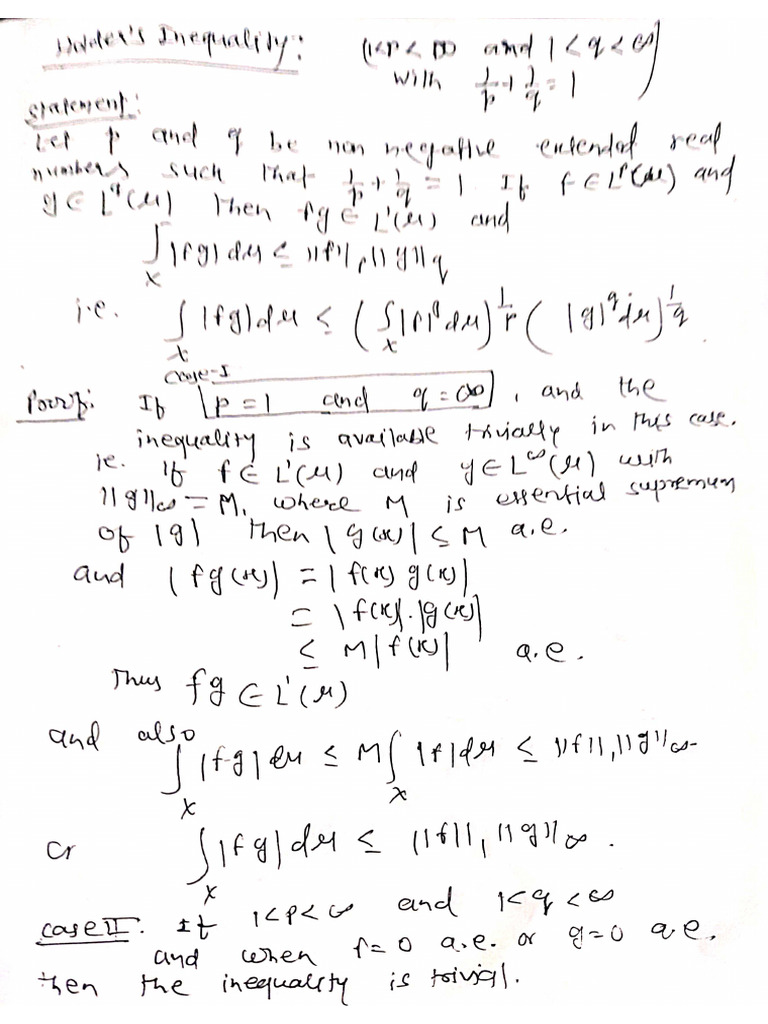 Holder's Inequality: (1<p<∞ and 1<q<∞)
with 1/p + 1/q = 1
Statement:
Let p and q be non negative extended real
numbers such that 1/p + 1/q = 1 If f ∈ L^p(μ) and
g ∈ L^q(μ) Then fg ∈ L'(μ) and
∫_X |fg| dμ ≤ ||f||_p ||g||_q
i.e. ∫_X |fg| dμ ≤ (∫_X |f|^p dμ)^{1/p} ( |g|^q dμ)^{1/q}
Case-I
Proof: If p = 1 and q = ∞, and the
inequality is available trivially in this case.
ie. If f ∈ L'(μ) and g ∈ L^∞(μ) with
||g||_∞ = M, where M is essential supremum
of |g| then |g(x)| ≤ M a.e.
and |fg(x)| = |f(x) g(x)|
= |f(x)|.|g(x)|
≤ M|f(x)| a.e.
Thus fg ∈ L'(μ)
and also
∫_X |fg| dμ ≤ M ∫_X |f| dμ ≤ ||f||_1 ||g||_∞
Or ∫_X |fg| dμ ≤ ||f||_1 ||g||_∞.
case II: If 1<p<∞ and 1<q<∞
and when f=0 a.e. or g=0 a.e.
then the inequality is trivial.